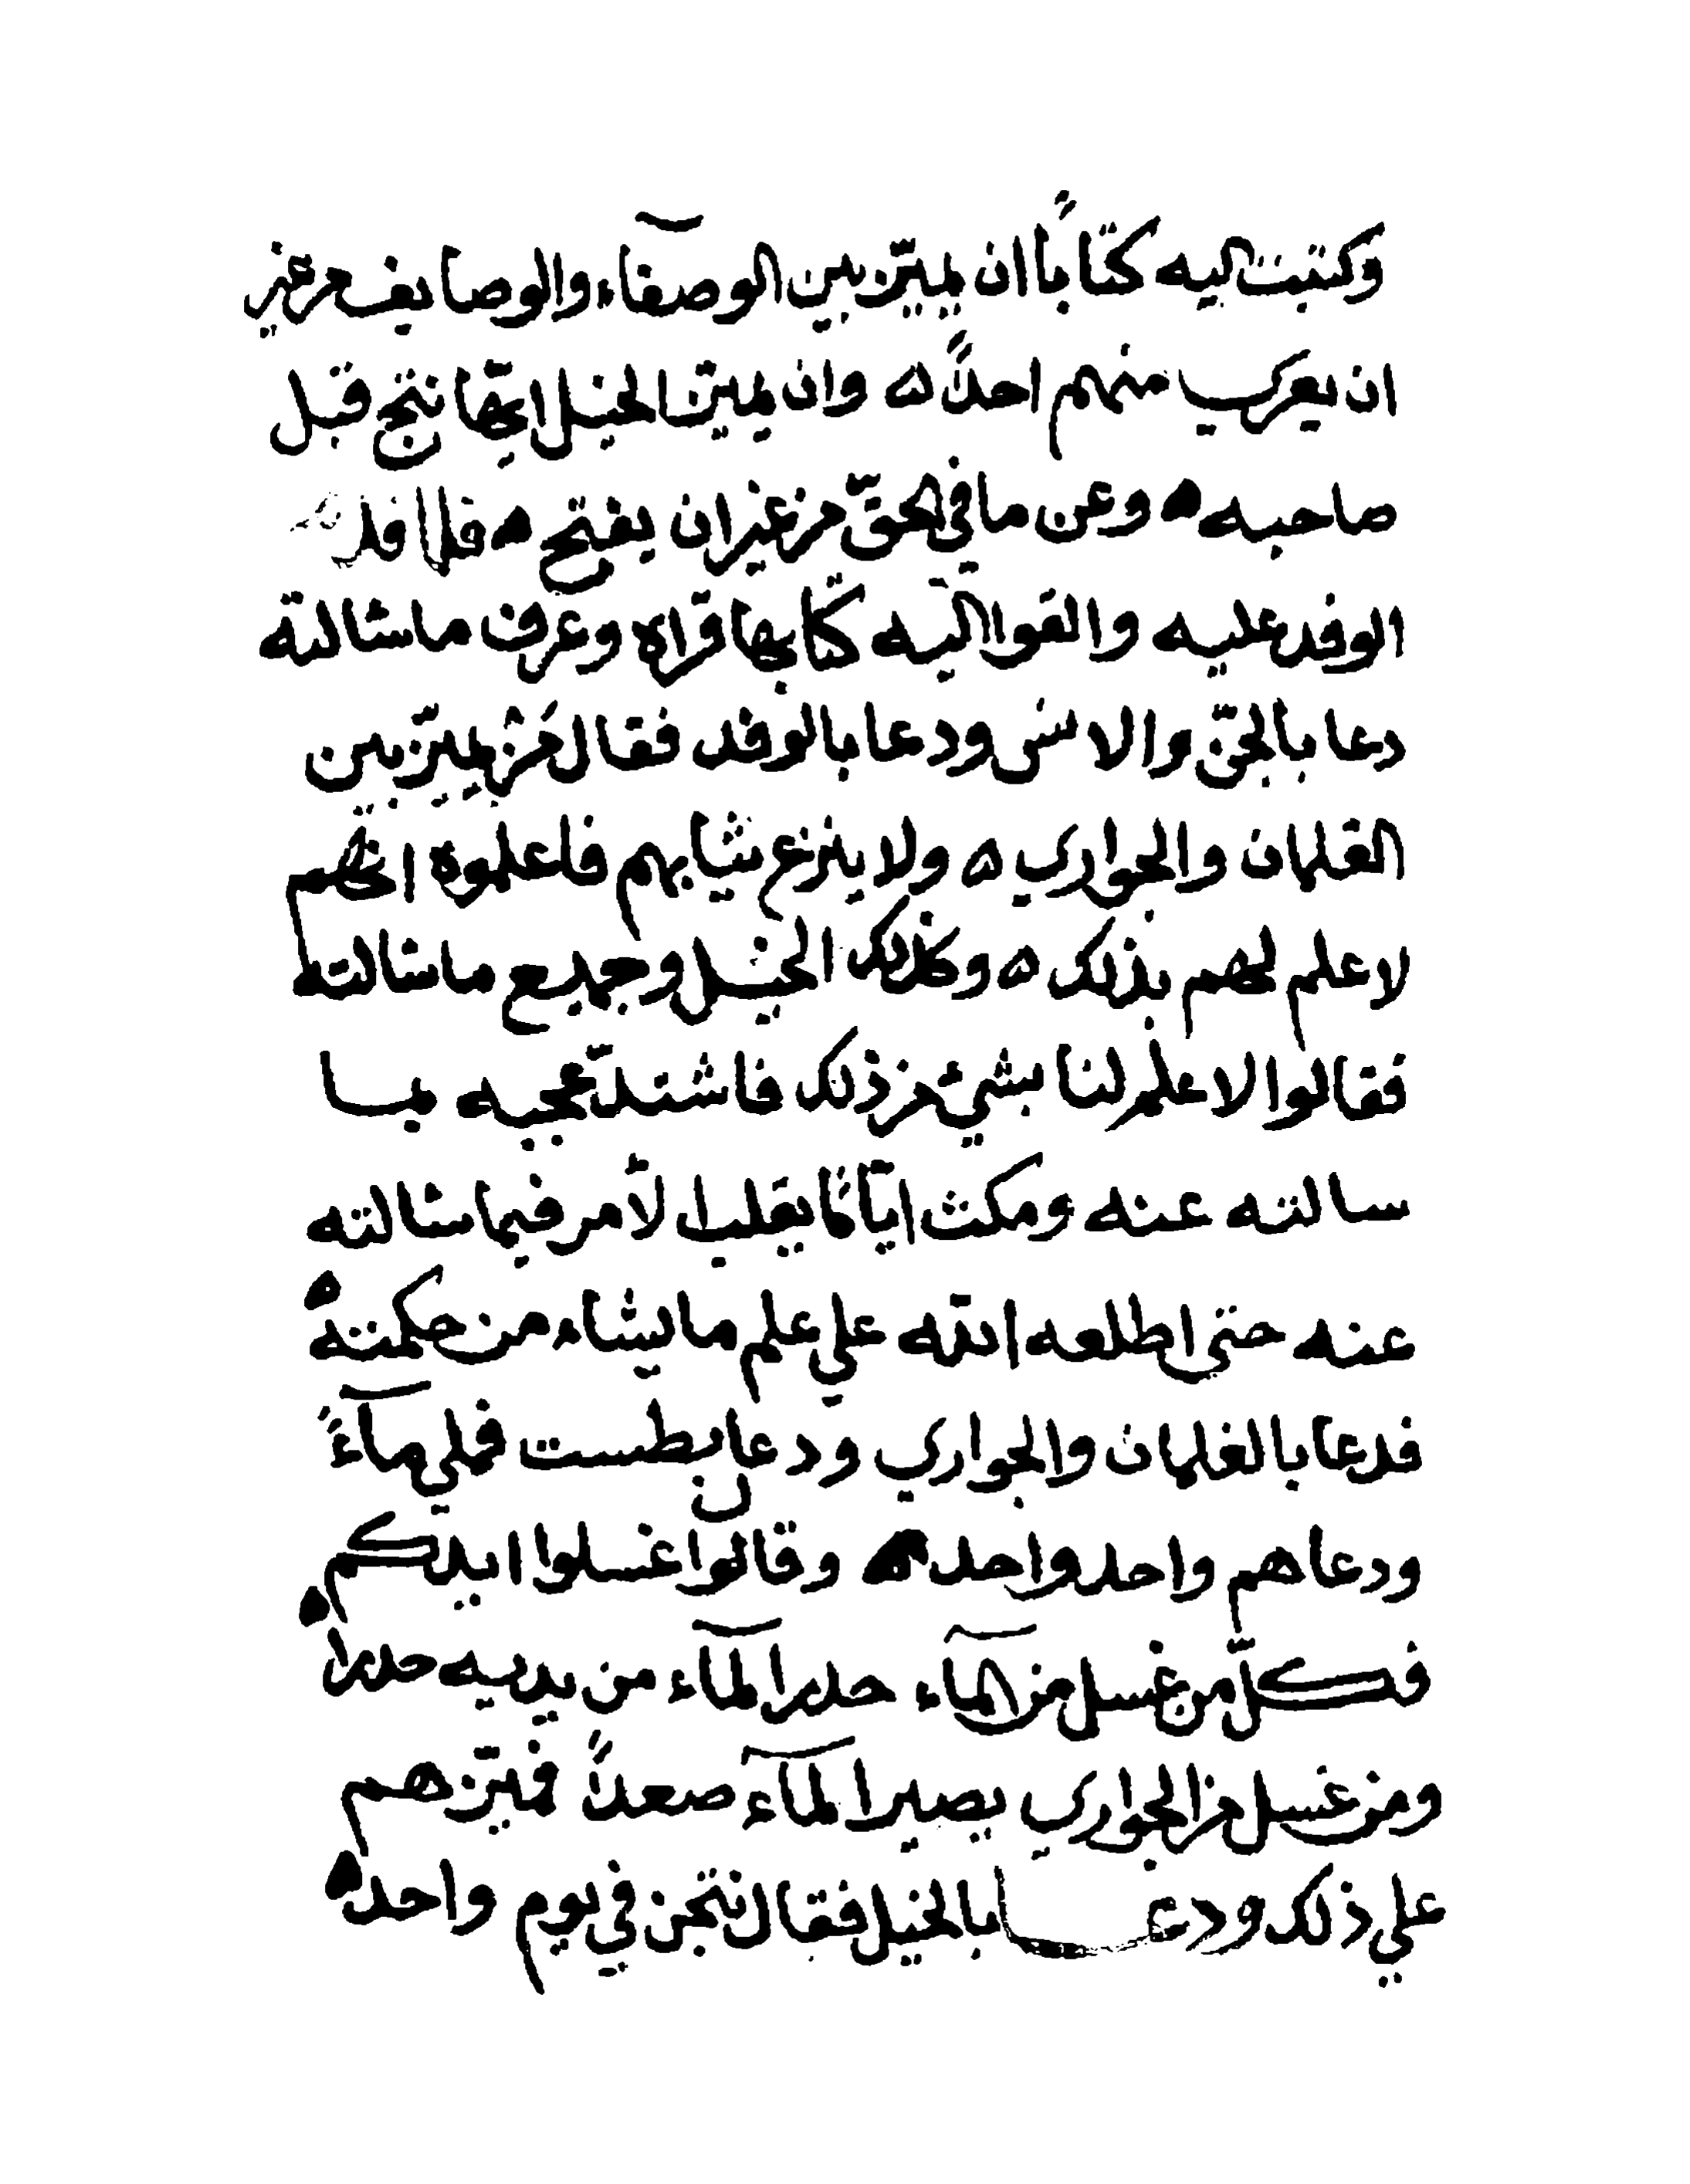 وكتبت اليه كتاباً ان يميّز بين الوصفآء والوصايف من غير
ان يعري منهم احداً ه وان يميّز الخيل ايّها نتج قبل
صاحبه ه وعن ما في الحقّ من غير ان يفتح ه فلما قدم
الوفد عليه والقوا اليه كتابها قراه وعرف ما سالته
دعا بالجنّ والانس ودعا بالوفد فقال من يميّز بين
الغلمان والجواري ه ولا ينزع ثيابهم فاعلموه انّهم
لا علم لهم بذلك ه وكذلك الخيل وجميع ما سالته
فقالوا لا علم لنا بشيء من ذلك فاشتدّ عجبه مما
سالته عنه ومكث ايّامًا يقلب الأمر فيما سالته
عنه حتى اطلعه الله على علم ما يشاء من حكمته ه
فدعا بالغلمان والجواري ودعا بطست فملي مآءً
ودعاهم واحد واحد ه وقالوا غسلوا ايديكم ه
فكلّ من غسل من المآء حدرا المآء من يديه حدرا
ومن غسل من الجواري يصير المآء صعداً فميّزهم
علي ذلك ودعا بالخيل فقال نتجن في يوم واحد ه